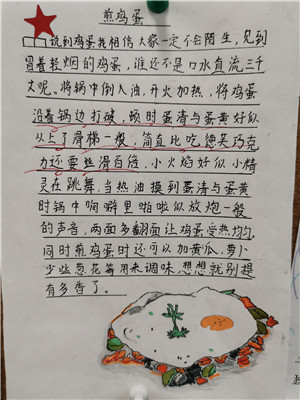 煎鸡蛋
说到鸡蛋我相信大家一定不会陌生,见到
冒着轻烟的鸡蛋,谁还不是口水直流三千
丈呢。将锅中倒入油,开火加热,将鸡蛋
沿着锅边打破,顿时蛋清与蛋黄好似
以上了滑梯一般,简直比吃德芙巧克
力还要丝滑百倍,小火焰好似小精
灵在跳舞,当热油摸到蛋清与蛋黄
时锅中响噼里啪啦似放炮一般
的声音,两面多翻面让鸡蛋受热均匀,
同时煎鸡蛋时还可以加黄瓜、萝卜
少些葱花等用来调味,想想就别提
有多香了。